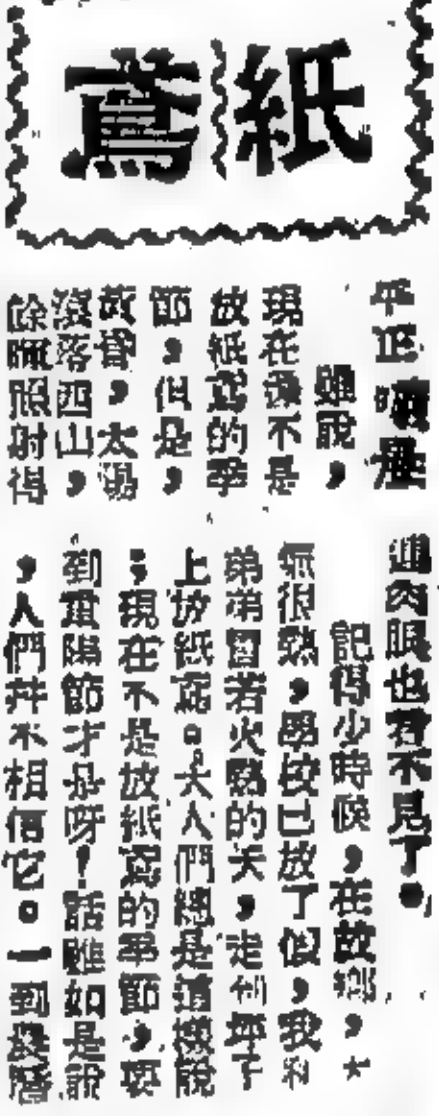 紙鳶
雖說，
現在還不是
放紙鳶的季
節，但是，
黃昏，太陽
沒落西山，
餘暉照射得
連肉眼也看不見了。
記得少時候，在故鄉，
氣很熱，學校已放了假，我和
弟弟冒着火熱的天，走到坪子
上放紙鳶。大人們總是這樣說
：現在不是放紙鳶的季節，要
到重陽節才是呀！話雖如是說
，人們并不相信它。一到農曆